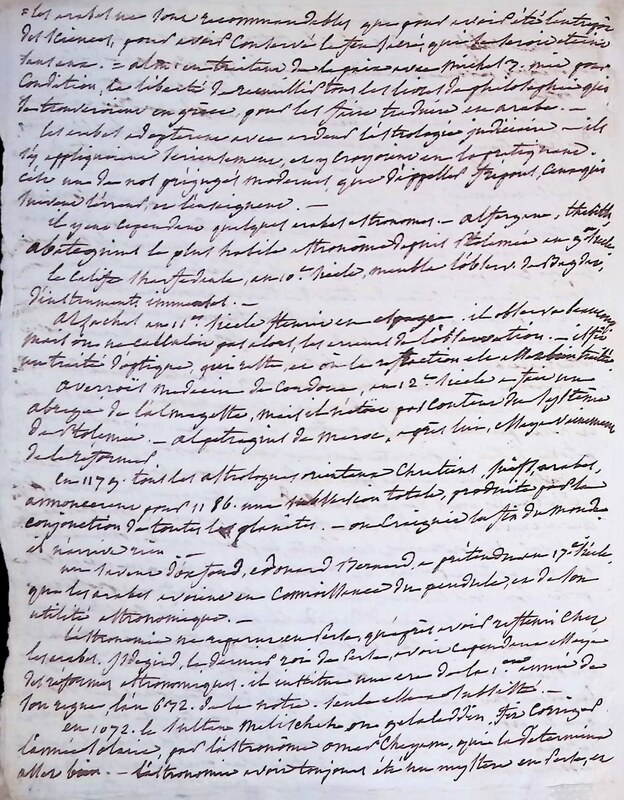 = les arabes ne sont recommandables que pour avoir été l'entrepôt
des sciences, pour avoir conservé le feu sacré que se seroit éteint
sans eux. = alm. en traitant de la paix avec Michel 3. mit pour
condition, la liberté de recueillir tous les livres de philosophie qui
se trouveroient en grèce pour les faire traduire en arabe. —
les arabes adopterent avec ardeur l'astrologie judiciaire — ils
s'y appliquoient serieusement, et y croyoient en la pratiquant.
c'est un de nos préjugés modernes que d'appeller fripons, ceux qui
suivent l'erreur, et l'enseignent. —
il y eut cependant quelques arabes astronomes. — alfergane, thebith,
albategnius le plus habile astronome depuis Ptolemée en 9e siècle
le calife, au 10e siècle, meuble l'observ. de Bagdad,
d'instruments immenses. —
Arsachel au 11me siecle fleurit en espagne. il observa beaucoup
mais on ne calculoit pas alors, les erreurs de l'observation. — il fit
un traité d'optique, qui reste, et où la refraction est traitée
averroës medecin de Cordoue, au 12e siecle a fait un
abregé de l'almageste, mais il n'étoit pas content du systême
de Ptolemée. — alpetragius de maroc, après lui, essaya vainement
de le reformer
en 1179. tous les astrologues orientaux Chretiens, juifs, arabes,
annoncerent pour 1186. une subversion totale, produite par la
conjonction de toutes les planetes. — on craignit la fin du monde
il n'arriva rien —
un savant d'oxford, edouard Bernard, a prétendu au 17e siècle,
que les arabes avoient eu connoissance du pendule et de son
utilité astronomique. —
l'astronomie ne reparut en Perse, qu'après avoir refleuri chez
les arabes. jsdegird, le dernier roi de Perse, avoit cependant essayé
des reformes astronomiques. il institua une ere de la 1ere année de
son regne, l'an 632. de la notre. seule elle a subsisté. —
en 1072. le sultan Melikschah ou gelaleddin, fit corriger
l'année solaire, par l'astronome omar Cheyam, qui la determina
assez bien. — l'astronomie avoit toujours été un mystere en Perse, et